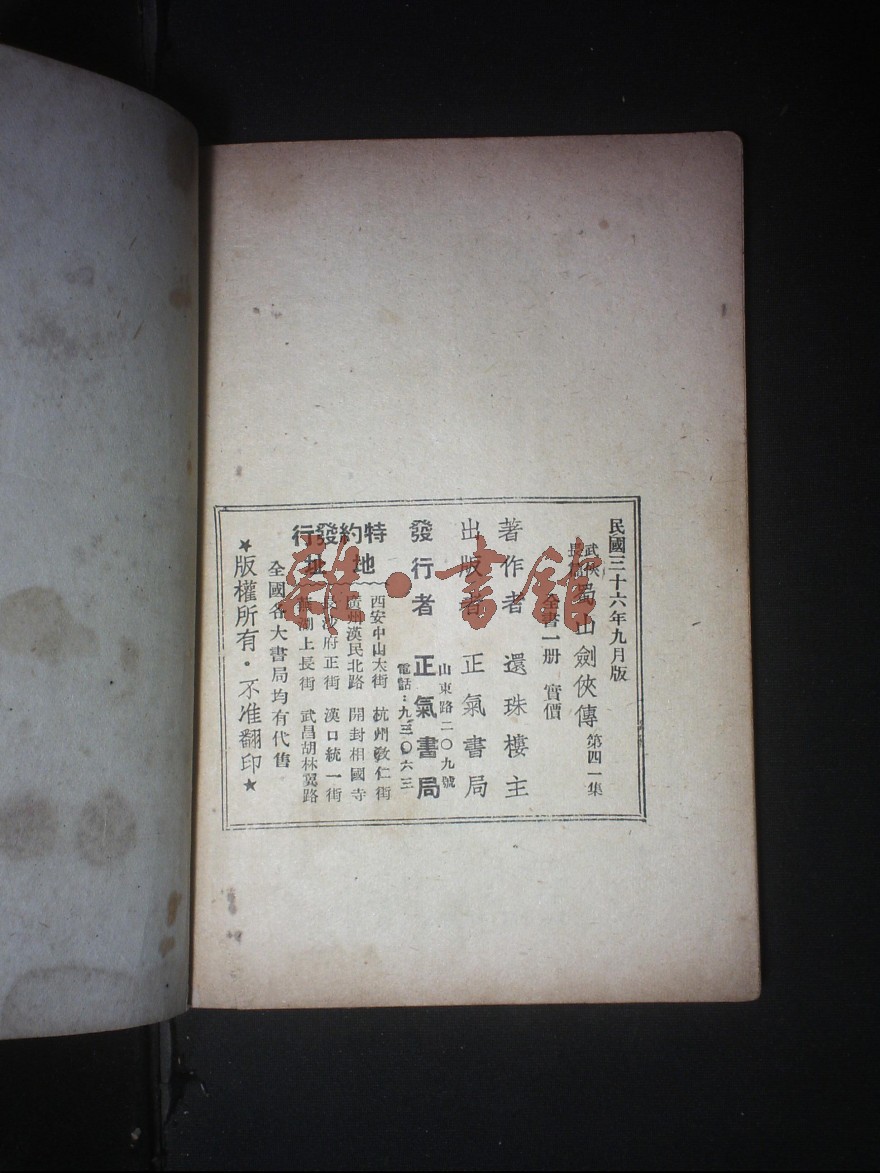 民國三十六年九月版
武俠長篇 蜀山劍俠傳 第四一集
全書一册 實價
著作者 還珠樓主
出版者 正氣書局
山東路二〇九號
發行者 正氣書局
電話：九三〇六三
特約發行地址
西安中山大街 杭州教仁街
廣州漢民北路 開封相國寺
長沙府正街 漢口統一街
蕪湖上長街 武昌胡林翼路
全國各大書局均有代售
★版權所有·不准翻印★
雜·書館